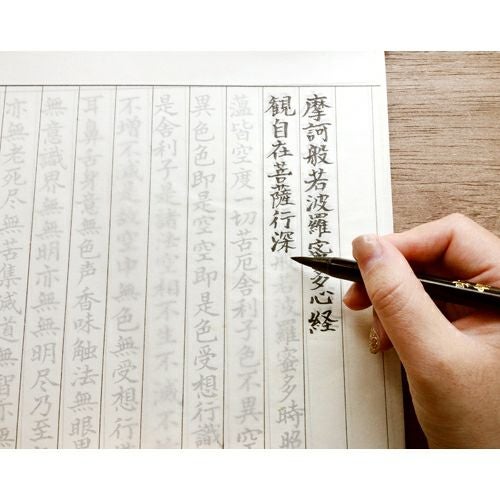 摩訶般若波羅蜜多心経
観自在菩薩行深般若波羅蜜多時照
薀皆空度一切苦厄舎利子色不異空
異色色即是空空即是色受想行識
是舎利子是諸法空相不生不滅不
不増不減是故空中無色無受想行
耳鼻舌身意無色声香味触法無眼界
無眼界乃至無意識界無無明尽乃至
亦無老死尽無苦集滅道無智亦無